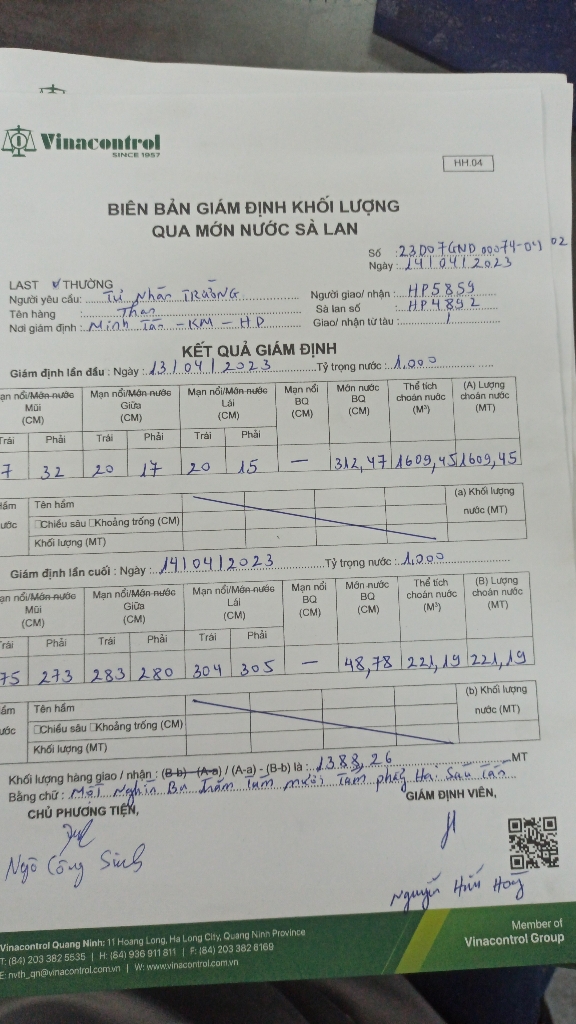 Vinacontrol
SINCE 1957
HH.04
BIÊN BẢN GIÁM ĐỊNH KHỐI LƯỢNG
QUA MỚN NƯỚC SÀ LAN
Số : 23D07GND 00074-04 02
Ngày : 14/04/2023
LAST THƯỜNG
Người yêu cầu: Tư Nhân TRƯỜNG Người giao/ nhận : HP5859
Tên hàng : Than Sà lan số : HP4892
Nơi giám định : Minh Tân - KM - HD Giao/ nhận từ tàu : /
KẾT QUẢ GIÁM ĐỊNH
Giám định lần đầu : Ngày : 13/04/2023 Tỷ trọng nước : 1,000
ạn nổi/Mớn nước Mạn nổi/Mớn nước Mạn nổi/Mớn nước Mạn nổi Mớn nước Thể tích (A) Lượng
Mũi Giữa Lái BQ BQ choán nước choán nước
(CM) (CM) (CM) (CM) (CM) (M³) (MT)
Trái Phải Trái Phải Trái Phải
7 32 20 17 20 15 — 312,47 1609,45 1609,45
hầm Tên hầm (a) Khối lượng
ước □Chiều sâu □Khoảng trống (CM) nước (MT)
Khối lượng (MT)
Giám định lần cuối : Ngày : 14/04/2023 Tỷ trọng nước : 1,000
ạn nổi/Mớn nước Mạn nổi/Mớn nước Mạn nổi/Mớn nước Mạn nổi Mớn nước Thể tích (B) Lượng
Mũi Giữa Lái BQ BQ choán nước choán nước
(CM) (CM) (CM) (CM) (CM) (M³) (MT)
Trái Phải Trái Phải Trái Phải
75 273 283 280 304 305 — 48,78 221,19 221,19
hầm Tên hầm (b) Khối lượng
ước □Chiều sâu □Khoảng trống (CM) nước (MT)
Khối lượng (MT)
Khối lượng hàng giao / nhận : (B-b) - (A-a) / (A-a) - (B-b) là : 1388,26 MT
Bằng chữ : Một Nghìn Ba Trăm Tám mươi Tám phẩy Hai Sáu Tấn
CHỦ PHƯƠNG TIỆN, GIÁM ĐỊNH VIÊN,
Ngô Công Sinh
Nguyễn Hữu
Vinacontrol Quang Ninh: 11 Hoang Long, Ha Long City, Quang Ninh Province
T: (84) 203 382 5535 | H: (84) 936 911 811 | F: (84) 203 382 8169
E: nvth_qn@vinacontrol.com.vn | W: www.vinacontrol.com.vn
Member of
Vinacontrol Group